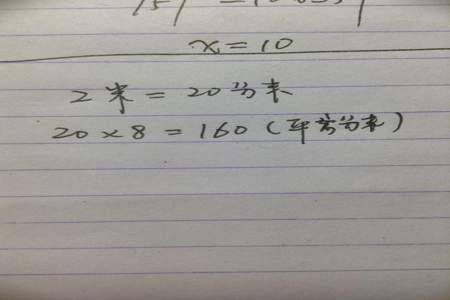 x=10
2米=20分米
20×8=160(平方分米)